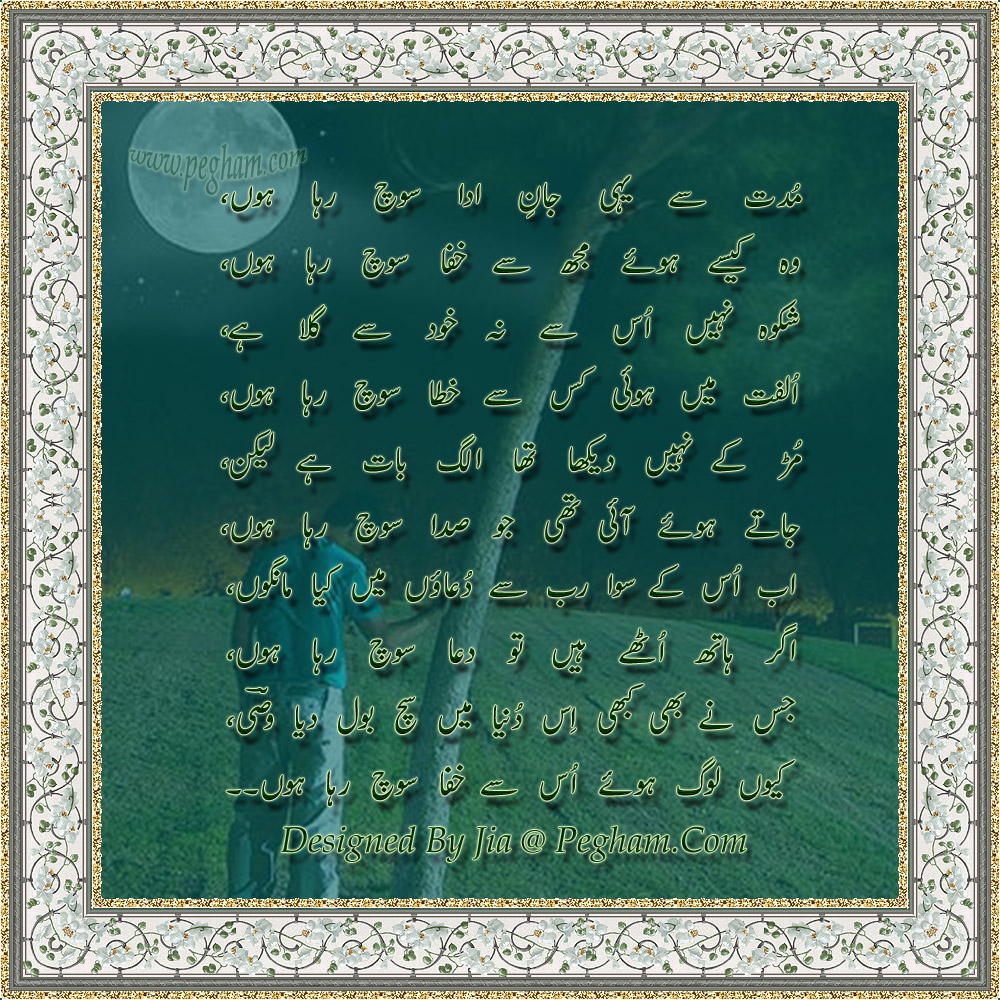 www.pegham.com
مُدت سے یہی جانِ ادا سوچ رہا ہوں،
وہ کیسے ہوئے مجھ سے خفا سوچ رہا ہوں،
شکوہ نہیں اُس سے نہ خود سے گلا ہے،
اُلفت میں ہوئی کس سے خطا سوچ رہا ہوں،
مُڑ کے نہیں دیکھا تھا الگ بات ہے لیکن،
جاتے ہوئے آئی تھی جو صدا سوچ رہا ہوں،
اب اُس کے سوا رب سے دُعاؤں میں کیا مانگوں،
اگر ہاتھ اُٹھے ہیں تو دعا سوچ رہا ہوں،
جس نے بھی کبھی اِس دُنیا میں سچ بول دیا وصی،
کیوں لوگ ہوئے اُس سے خفا سوچ رہا ہوں۔۔
Designed By Jia @ Pegham.Com